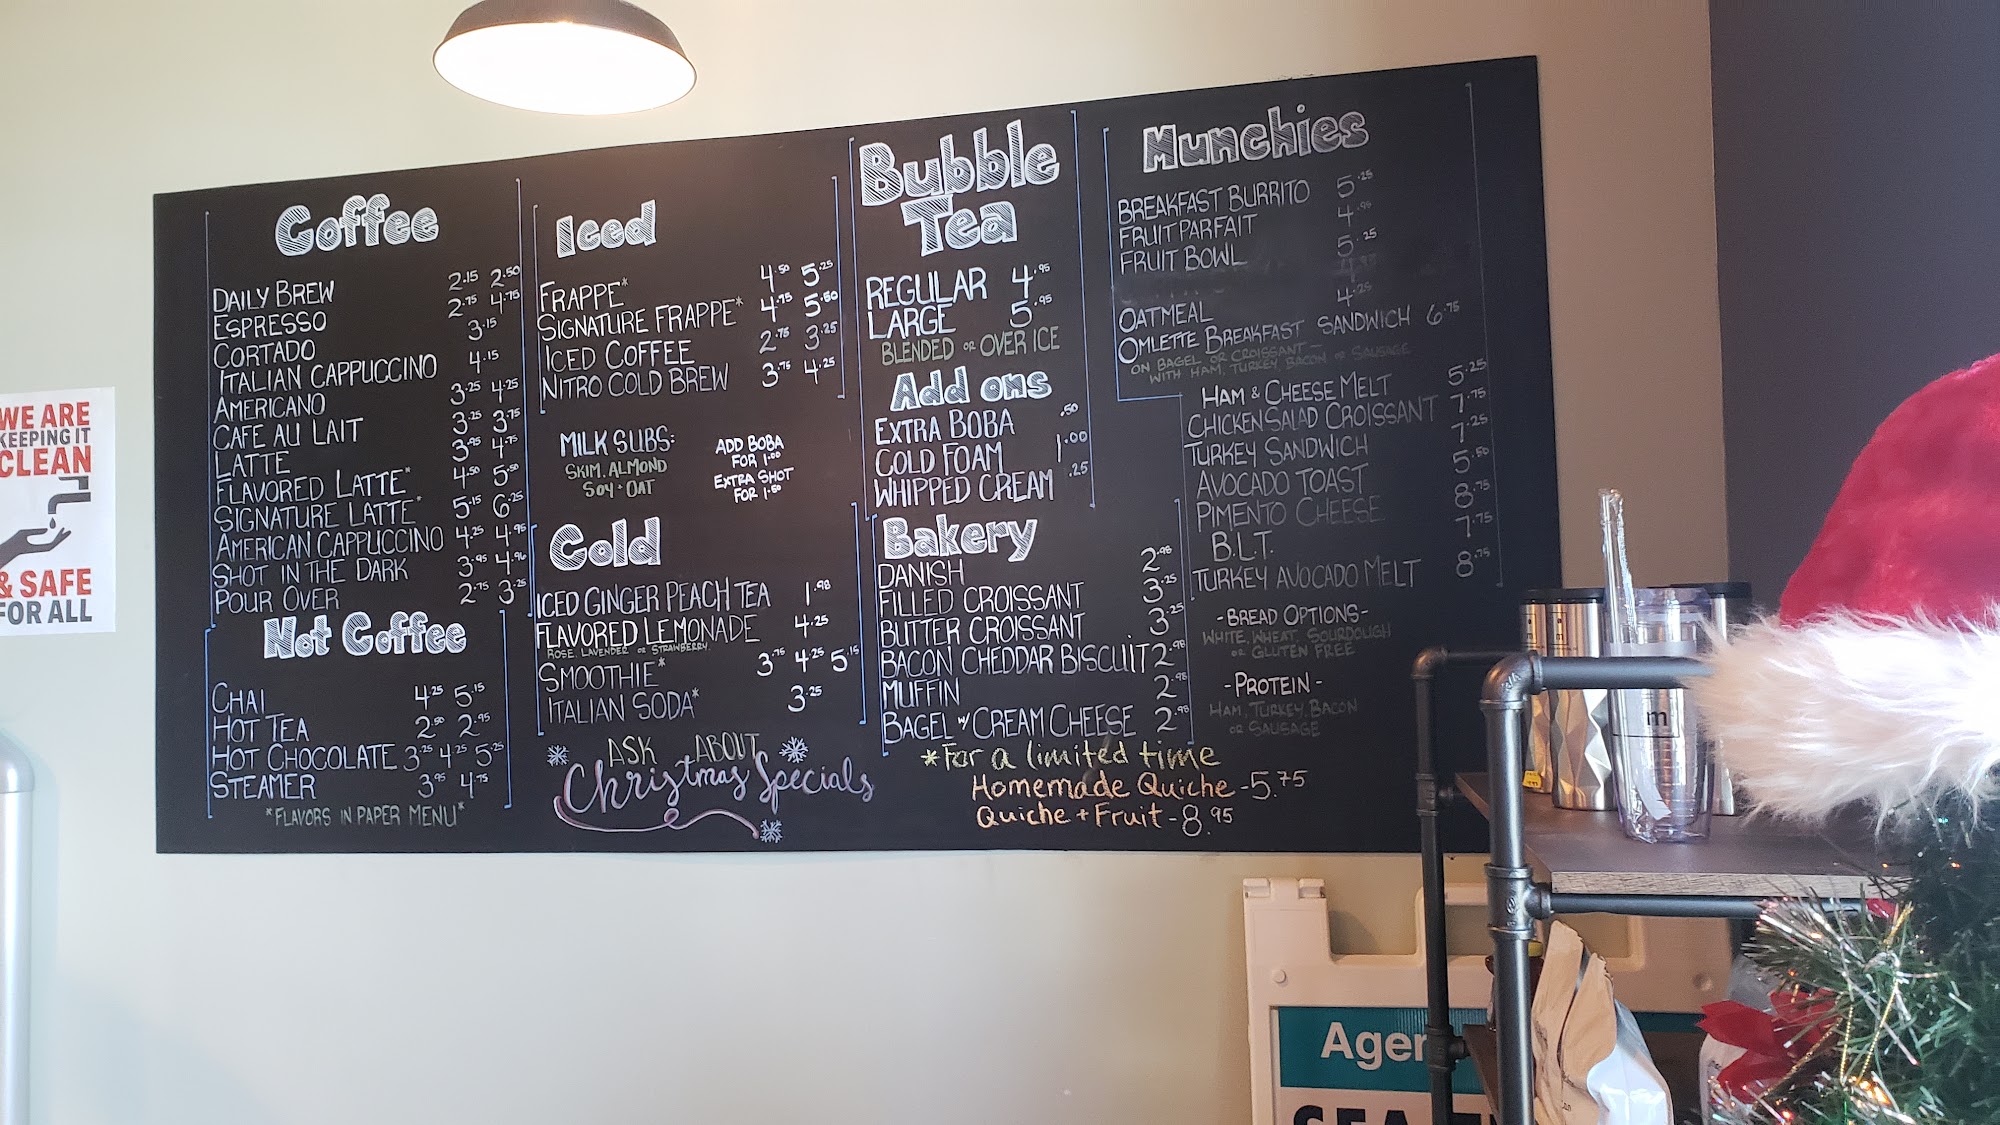 WE ARE
KEEPING IT
CLEAN
& SAFE
FOR ALL
Coffee
DAILY BREW 2.15 2.50
ESPRESSO 2.75 4.75
CORTADO 3.15
ITALIAN CAPPUCCINO 4.15
AMERICANO 3.25 4.25
CAFE AU LAIT 3.25 3.75
LATTE 3.95 4.75
FLAVORED LATTE* 4.50 5.50
SIGNATURE LATTE* 5.15 6.25
AMERICAN CAPPUCCINO 4.25 4.95
SHOT IN THE DARK 3.95 4.96
POUR OVER 2.75 3.25
Not Coffee
CHAI 4.25 5.15
HOT TEA 2.50 2.95
HOT CHOCOLATE 3.25 4.25 5.25
STEAMER 3.95 4.75
*FLAVORS IN PAPER MENU*
Iced
FRAPPE* 4.50 5.25
SIGNATURE FRAPPE* 4.75 5.50
ICED COFFEE 2.75 3.25
NITRO COLD BREW 3.75 4.25
MILK SUBS:
SKIM, ALMOND
SOY - OAT
ADD BOBA
FOR 1.00
EXTRA SHOT
FOR 1.50
Cold
ICED GINGER PEACH TEA 1.98
FLAVORED LEMONADE 4.25
ROSE, LAVENDER OR STRAWBERRY
SMOOTHIE* 3.75 4.25 5.15
ITALIAN SODA* 3.25
ASK ABOUT
Christmas Specials
Bubble
Tea
REGULAR 4.95
LARGE 5.95
BLENDED OR OVER ICE
Add ons
EXTRA BOBA .50
COLD FOAM 1.00
WHIPPED CREAM .25
Bakery
DANISH 2.98
FILLED CROISSANT 3.25
BUTTER CROISSANT 3.25
BACON CHEDDAR BISCUIT 2.98
MUFFIN 2.98
BAGEL W/ CREAM CHEESE 2.98
*For a limited time
Homemade Quiche - 5.75
Quiche + Fruit - 8.95
Munchies
BREAKFAST BURRITO 5.25
FRUIT PARFAIT 4.95
FRUIT BOWL 5.25
OATMEAL 4.25
OMLETTE BREAKFAST SANDWICH 6.75
ON BAGEL OR CROISSANT -
WITH HAM, TURKEY, BACON OR SAUSAGE
HAM & CHEESE MELT 5.25
CHICKEN SALAD CROISSANT 7.75
TURKEY SANDWICH 7.25
AVOCADO TOAST 5.50
PIMENTO CHEESE 8.75
B.L.T. 7.75
TURKEY AVOCADO MELT 8.75
- BREAD OPTIONS -
WHITE, WHEAT, SOURDOUGH
OR GLUTEN FREE
- PROTEIN -
HAM, TURKEY, BACON
OR SAUSAGE
m
Agen